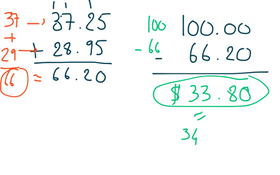 37 → 37.25
+
29 + 28.95
66 = 66.20
100 100.00
- 66 - 66.20
$ 33.80
=
34